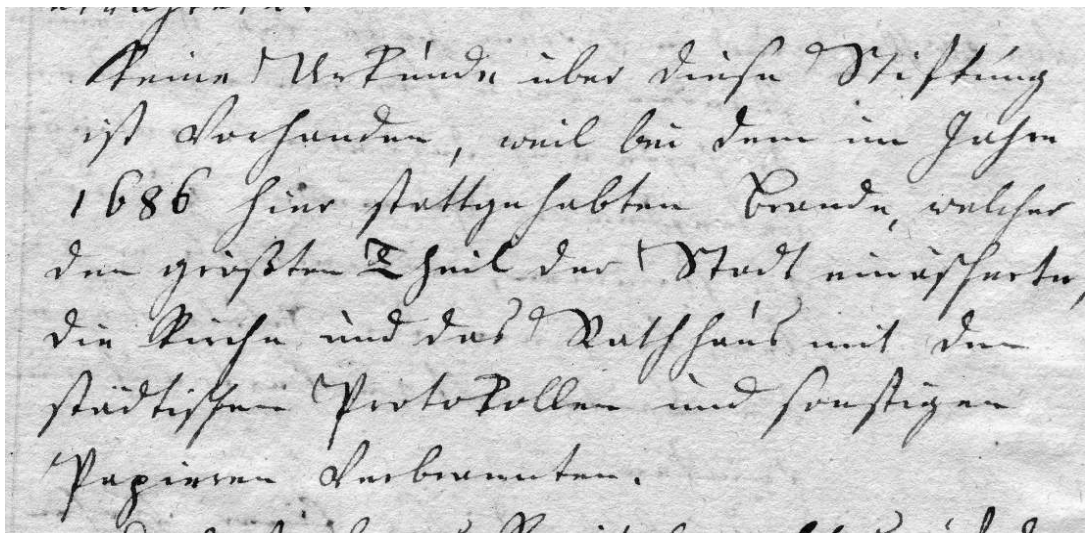 Keine Urkunde über diese Stiftung
ist vorhanden, weil bei dem im Jahre
1686 hier stattgehabten Brande, welcher
den größten Theil der Stadt einäscherte,
die Kirche und das Rathhaus mit den
städtischen Protokollen und sonstigen
Papieren verbrannten.